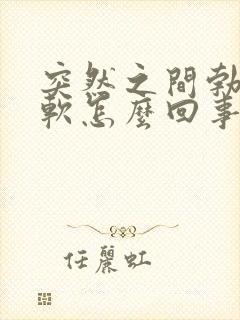 突然之間勃
軟怎麼回事
任麗虹